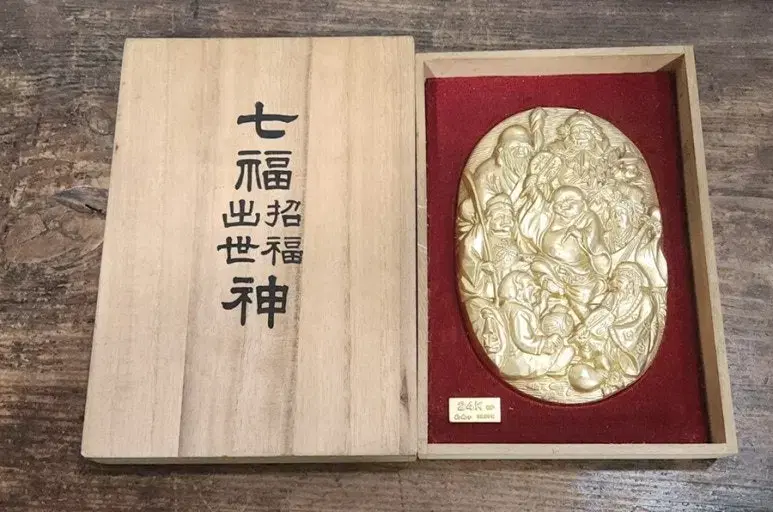 七
福
招福
出世
神
24K GP